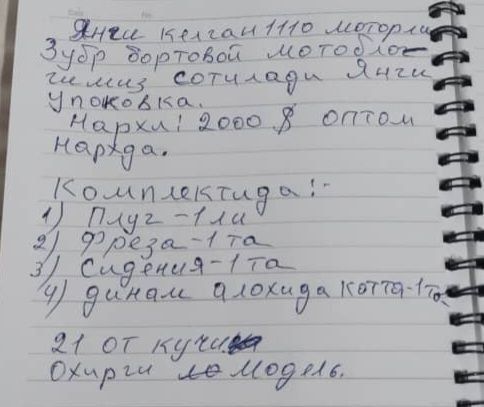 Янги келган 1110 моторли
Зубр бортовой мотоблог
гимиз сотилади Янги
упоковка.
Нархи: 2000 $ оптом
нархда.
Комплектида:-
1) Плуг -1 ли
2) Фреза -1 та
3) Сидения -1 та
4) динам алохида котта-1та
21 от кучи
Охирги модель.